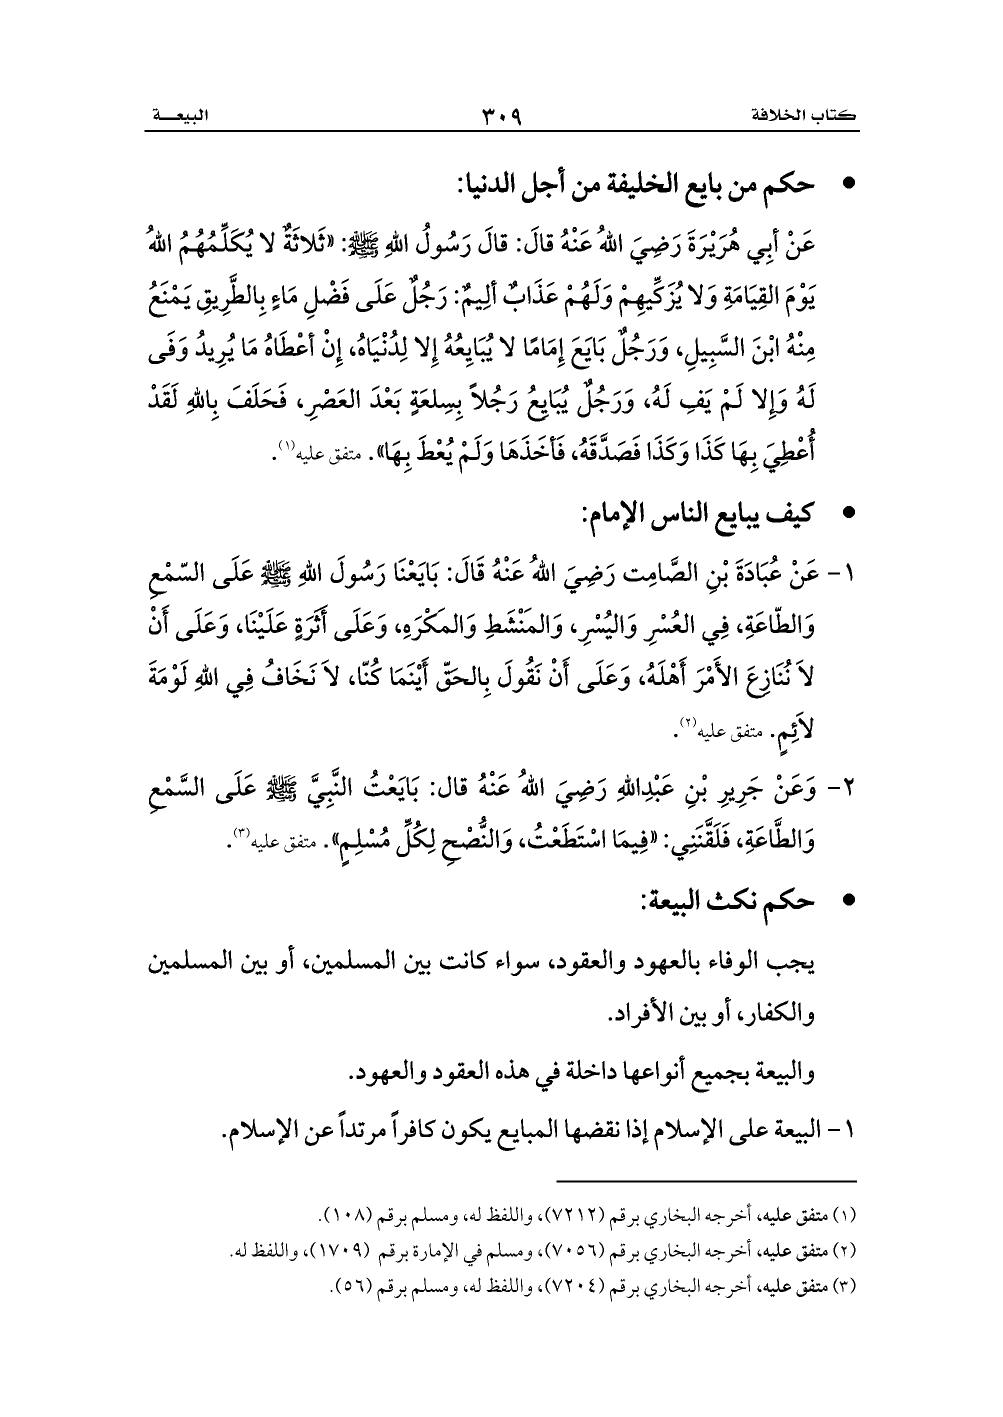 كتاب الخلافة ٣٠٩ البيعـــة
• حكم من بايع الخليفة من أجل الدنيا:
عَنْ أبِي هُرَيْرَةَ رَضِيَ اللهُ عَنْهُ قالَ: قالَ رَسُولُ اللهِ ﷺ: «ثَلاثَةٌ لا يُكَلِّمُهُمُ اللهُ
يَوْمَ القِيَامَةِ وَلا يُزَكِّيهِمْ وَلَهُمْ عَذَابٌ ألِيمٌ: رَجُلٌ عَلَى فَضْلِ مَاءٍ بِالطَّرِيقِ يَمْنَعُ
مِنْهُ ابْنَ السَّبِيلِ، وَرَجُلٌ بَايَعَ إمَامًا لا يُبَايِعُهُ إلا لِدُنْيَاهُ، إنْ أعْطَاهُ مَا يُرِيدُ وَفَى
لَهُ وَإلا لَمْ يَفِ لَهُ، وَرَجُلٌ يُبَايِعُ رَجُلاً بِسِلعَةٍ بَعْدَ العَصْرِ، فَحَلَفَ بِاللهِ لَقَدْ
أُعْطِيَ بِهَا كَذَا وَكَذَا فَصَدَّقَهُ، فَأخَذَهَا وَلَمْ يُعْطَ بِهَا». متفق عليه(١).
• كيف يبايع الناس الإمام:
١- عَنْ عُبَادَةَ بْنِ الصَّامِت رَضِيَ اللهُ عَنْهُ قَالَ: بَايَعْنَا رَسُولَ اللهِ ﷺ عَلَى السّمْعِ
وَالطّاعَةِ، فِي العُسْرِ وَاليُسْرِ، وَالمَنْشَطِ وَالمَكْرَهِ، وَعَلَى أَثَرَةٍ عَلَيْنَا، وَعَلَى أَنْ
لاَ نُنَازِعَ الأَمْرَ أَهْلَهُ، وَعَلَى أَنْ نَقُولَ بِالحَقّ أَيْنَمَا كُنّا، لاَ نَخَافُ فِي اللهِ لَوْمَةَ
لاَئِمٍ. متفق عليه(٢).
٢- وَعَنْ جَرِيرِ بْنِ عَبْدِاللهِ رَضِيَ اللهُ عَنْهُ قال: بَايَعْتُ النَّبِيَّ ﷺ عَلَى السَّمْعِ
وَالطَّاعَةِ، فَلَقَّنَنِي: «فِيمَا اسْتَطَعْتُ، وَالنُّصْحِ لِكُلِّ مُسْلِمٍ». متفق عليه(٣).
• حكم نكث البيعة:
يجب الوفاء بالعهود والعقود، سواء كانت بين المسلمين، أو بين المسلمين
والكفار، أو بين الأفراد.
والبيعة بجميع أنواعها داخلة في هذه العقود والعهود.
١- البيعة على الإسلام إذا نقضها المبايع يكون كافراً مرتداً عن الإسلام.
(١) متفق عليه، أخرجه البخاري برقم (٧٢١٢)، واللفظ له، ومسلم برقم (١٠٨).
(٢) متفق عليه، أخرجه البخاري برقم (٧٠٥٦)، ومسلم في الإمارة برقم (١٧٠٩)، واللفظ له.
(٣) متفق عليه، أخرجه البخاري برقم (٧٢٠٤)، واللفظ له، ومسلم برقم (٥٦).